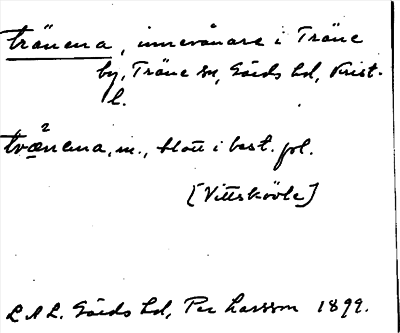 tränena, innevånare i Träne
by, Träne sn, Gärds hd, Krist.
l.
2
tränena, m., blott i best. pl.
[Vittskövle]
LAL. Gärds hd, Per Larsson 1899.